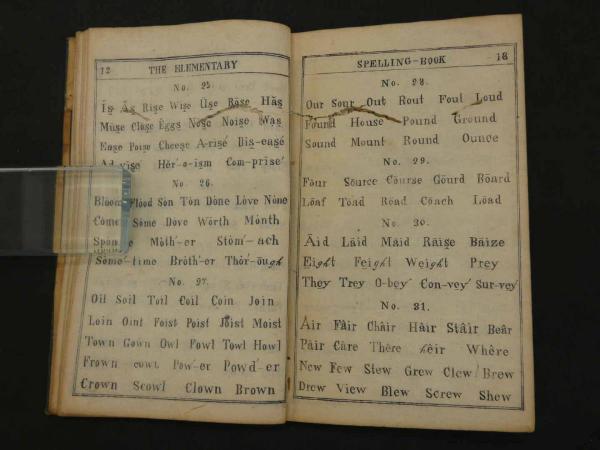 12 THE ELEMENTARY
No. 25.
Ĭş Ăş Rişe Wişe Ūşe Roşe Hăş
Müşe Cloşe Ĕggs Noşe Noişe Waş
Eaşe Poişe Cheeşe A-rişé Diş-eaşé
Ad-vişé Hĕŕ-o-işm Com-prişé
No. 26.
Bloom Flood Son Ton Dòne Lòve Nòne
Còme Sòme Dòve Wòrth Mònth
Mòth-er Stòm-ach
Sòmé-time Bròth-er Thòr-ough
No. 27.
Oil Soil Toil Coil Coin Join
Loin Oint Foist Poist Joist Moist
Town Gown Owl Fowl Towl Howl
Frown cowl Pow-er Powd-er
Crown Scowl Clown Brown
SPELLING-BOOK 13
No. 28.
Our Sour Out Rout Foul Loud
Found House Pound Ground
Sound Mount Round Ounce
No. 29.
Fōur Sōurce Cōurse Gōurd Bōard
Lōaf Tōad Rōad Cōach Lōad
No. 30.
Āid Lāid Māid Rāişe Bāize
Eight Feight Weight Prey
They Trey O-beý Con-veý Sur-veý
No. 31.
Âir Fâir Châir Hâir Stâir Beâr
Pâir Câre Thêre hêir Whêre
New Few Stew Grew Clew Brew
Drew View Blew Screw Shew